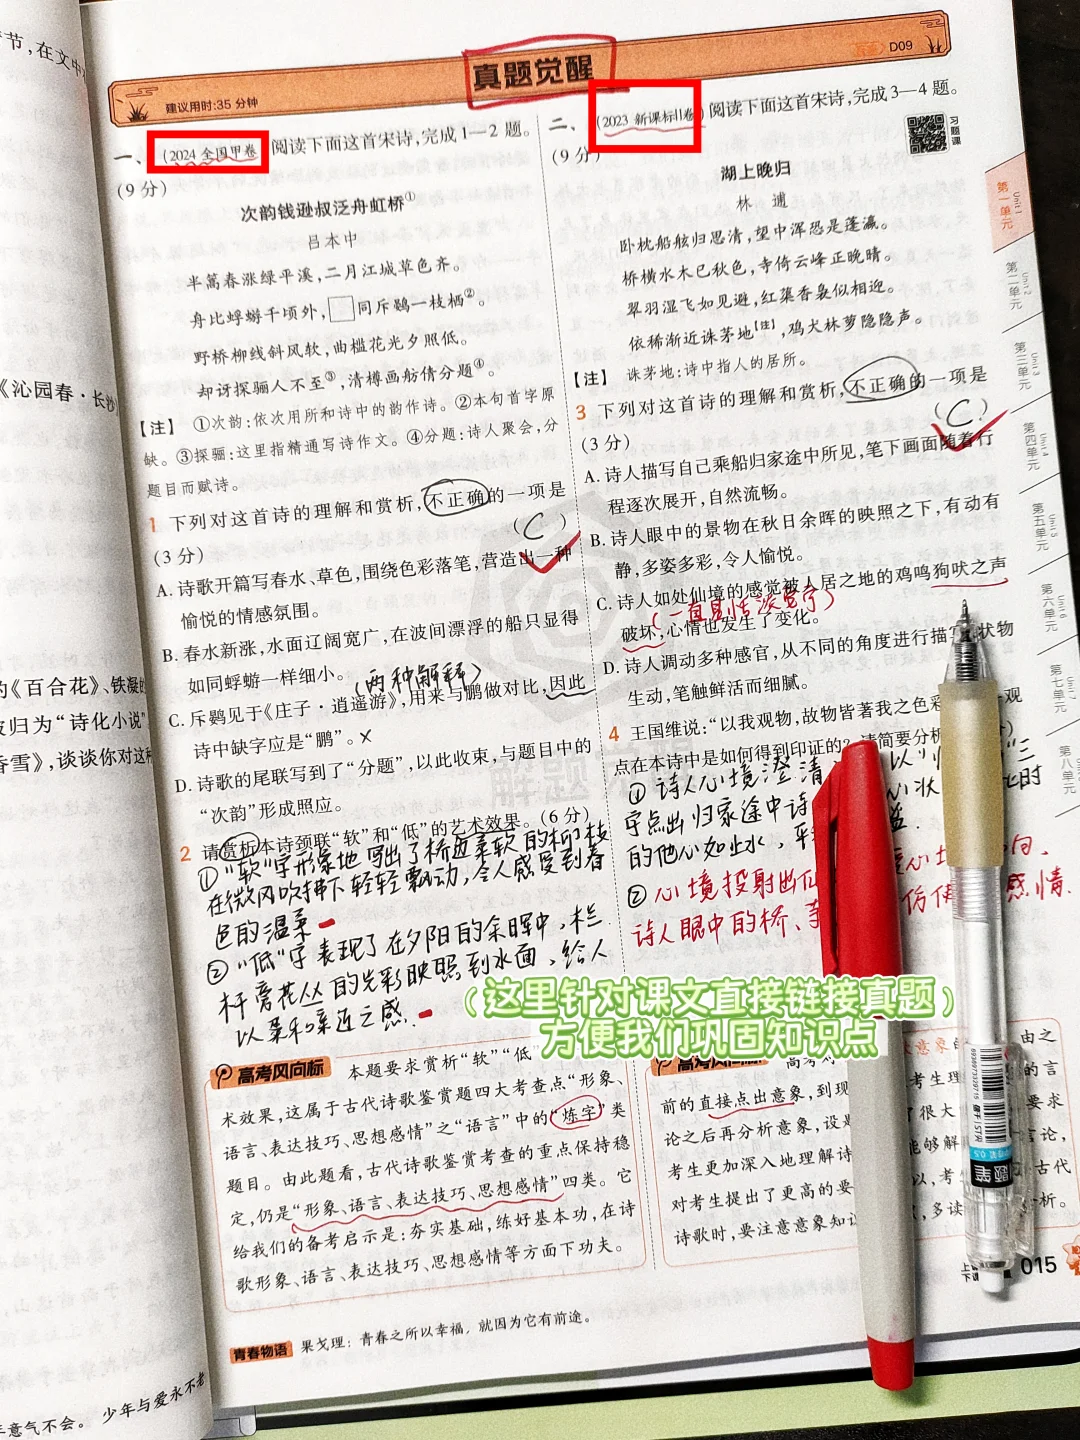 真题觉醒
建议用时:35 分钟
D09
一、(2024 全国甲卷)阅读下面这首宋诗,完成1—2 题。
(9 分)
次韵钱逊叔泛舟虹桥①
吕本中
半篙春涨绿平溪,二月江城草色齐。
舟比蜉蝣千顷外,□同斥鷃一枝栖②。
野桥柳线斜风软,曲槛花光夕照低。
却讶探骊人不至③,清樽画舫倩分题④。
【注】 ①次韵:依次用所和诗中的韵作诗。②本句首字原
缺。③探骊:这里指精通写诗作文。④分题:诗人聚会,分
题目而赋诗。
1 下列对这首诗的理解和赏析,不正确的一项是
(3 分)
( C )
A. 诗歌开篇写春水、草色,围绕色彩落笔,营造出一种
愉悦的情感氛围。
B. 春水新涨,水面辽阔宽广,在波间漂浮的船只显得
如同蜉蝣一样细小。
(两种解释)
C. 斥鷃见于《庄子·逍遥游》,用来与鹏做对比,因此
诗中缺字应是“鹏”。×
D. 诗歌的尾联写到了“分题”,以此收束,与题目中的
“次韵”形成照应。
2 请赏析本诗颈联“软”和“低”的艺术效果。(6 分)
①“软”字形象地写出了桥边柔软的柳枝
在微风吹拂下轻轻飘动,令人感受到春
色的温柔
②“低”字表现了在夕阳的余晖中,栏
杆旁花丛的光彩映照到水面,给人
以柔和亲近之感.
高考风向标
本题要求赏析“软”“低”
术效果,这属于古代诗歌鉴赏题四大考查点“形象、
语言、表达技巧、思想感情”之“语言”中的“炼字”类
题目。由此题看,古代诗歌鉴赏考查的重点保持稳
定,仍是“形象、语言、表达技巧、思想感情”四类。它
给我们的备考启示是:夯实基础,练好基本功,在诗
歌形象、语言、表达技巧、思想感情等方面下功夫。
青春物语 果戈理:青春之所以幸福,就因为它有前途。
二、(2023 新课标Ⅱ卷)阅读下面这首宋诗,完成3—4 题。
(9 分)
习题课
湖上晚归
林 逋
卧枕船舷归思清,望中浑恐是蓬瀛。
桥横水木已秋色,寺倚云峰正晚晴。
翠羽湿飞如见避,红蕖香袅似相迎。
依稀渐近诛茅地[注],鸡犬林萝隐隐声。
【注】 诛茅地:诗中指人的居所。
3 下列对这首诗的理解和赏析,不正确的一项是
(3 分)
( C )
A. 诗人描写自己乘船归家途中所见,笔下画面随着行
程逐次展开,自然流畅。
B. 诗人眼中的景物在秋日余晖的映照之下,有动有
静,多姿多彩,令人愉悦。
C. 诗人如处仙境的感觉被人居之地的鸡鸣狗吠之声
破坏,心情也发生了变化。
D. 诗人调动多种感官,从不同的角度进行描
生动,笔触鲜活而细腻。
4 王国维说:“以我观物,故物皆著我之色彩
点在本诗中是如何得到印证的?请简要分析
①诗人心境澄清
字点出归家途中诗
的他心如止水,
②心境投射出仙
诗人眼中的桥、
感情.
(这里针对课文直接链接真题)
方便我们巩固知识点
高考风向标
前的直接点出意象,到现
论之后再分析意象,设是
考生更加深入地理解诗
对考生提出了更高的要
诗歌时,要注意意象知识
第一单元
Unit 1
第二单元
Unit 2
第三单元
第四单元
第五单元
第六单元
第七单元
第八单元
015
《沁园春·长沙
的《百合花》、铁凝的
香雪》,谈谈你对这种
年意气不会。 少年与爱永不老